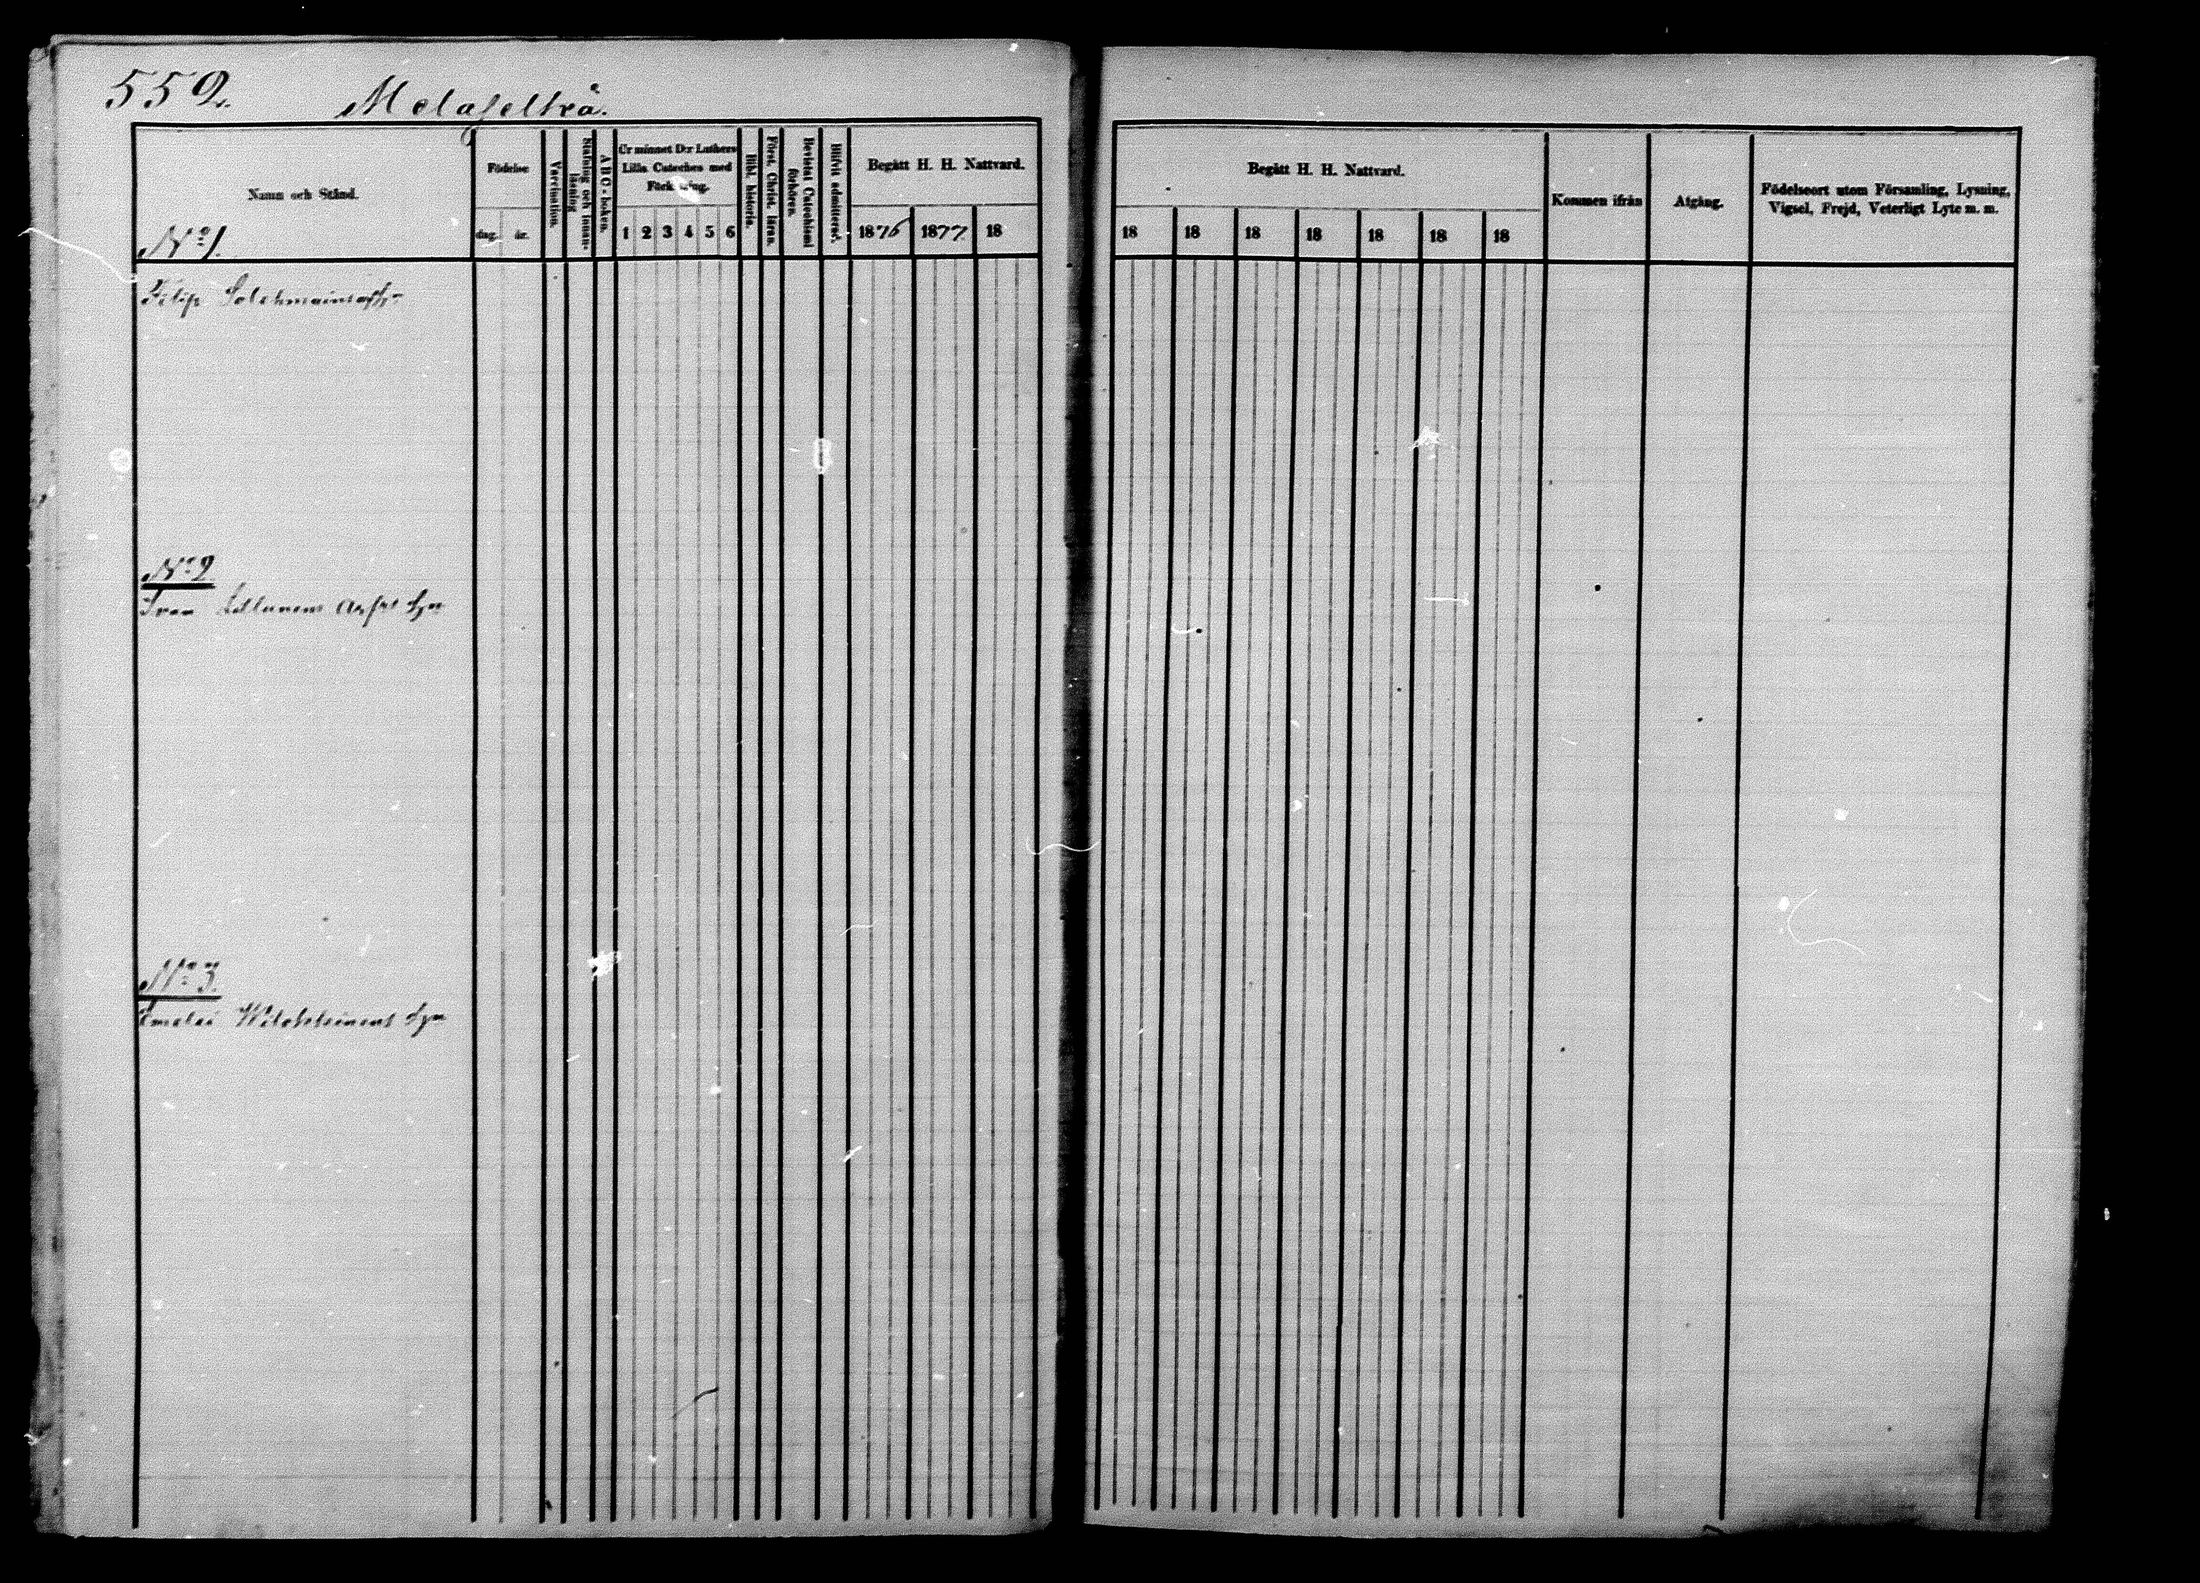 552.
Melaselkä.
Namn och Stånd.
Födelse
dag. år.
Vaccination.
Stafning och innanläsning
A B C-boken.
Ur minnet D:r Luthers
Lilla Cateches med
Förklaring.
1 2 3 4 5 6
Bibl. historia.
Först. Christ. läran.
Bevistat Catechismi förhören.
Blifvit admitterad.
Begått H. H. Nattvard.
1876 1877 18
Begått H. H. Nattvard.
18 18 18 18 18 18 18
Kommen ifrån
Afgång.
Födelseort utom Församling, Lysning,
Vigsel, Frejd, Veterligt Lyte m. m.
No 1.
Filip
No 2
Ivan
No 3.